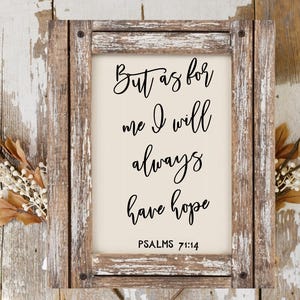 But as for
me I will
always
have hope
PSALMS 71:14